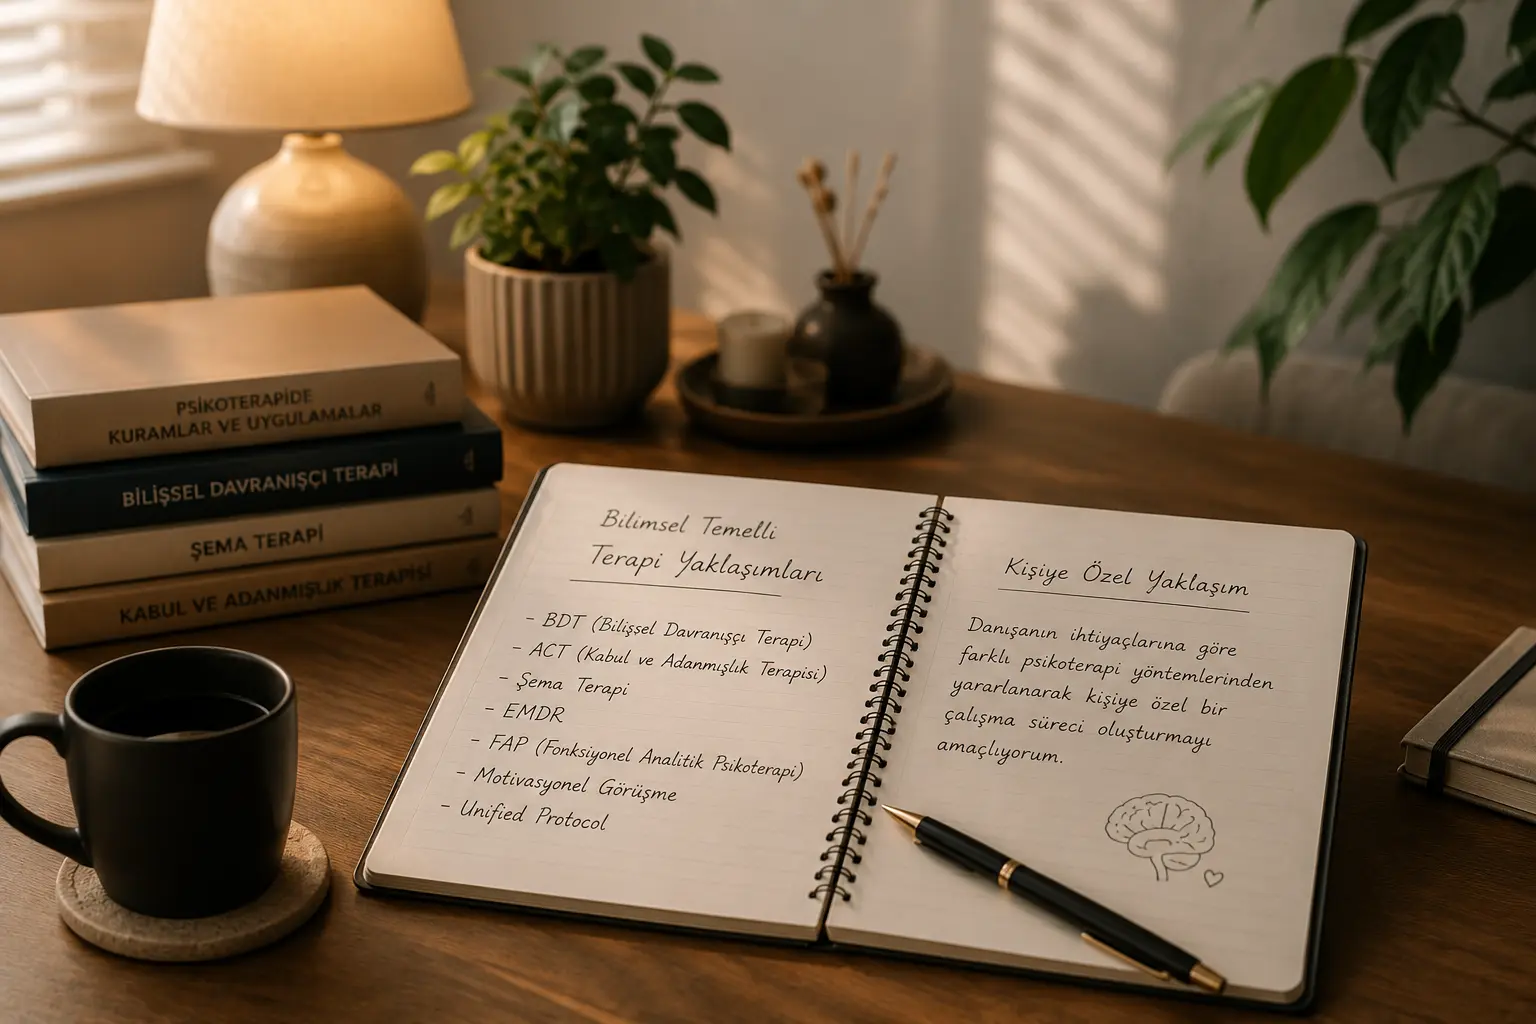 PSİKOTERAPİDE
KURAMLAR VE UYGULAMALAR
BİLİŞSEL DAVRANIŞÇI TERAPİ
ŞEMA TERAPİ
KABUL VE ADANMIŞLIK TERAPİSİ
Bilimsel Temelli
Terapi Yaklaşımları
- BDT (Bilişsel Davranışçı Terapi)
- ACT (Kabul ve Adanmışlık Terapisi)
- Şema Terapi
- EMDR
- FAP (Fonksiyonel Analitik Psikoterapi)
- Motivasyonel Görüşme
- Unified Protocol
Kişiye Özel Yaklaşım
Danışanın ihtiyaçlarına göre
farklı psikoterapi yöntemlerinden
yararlanarak kişiye özel bir
çalışma süreci oluşturmayı
amaçlıyorum.